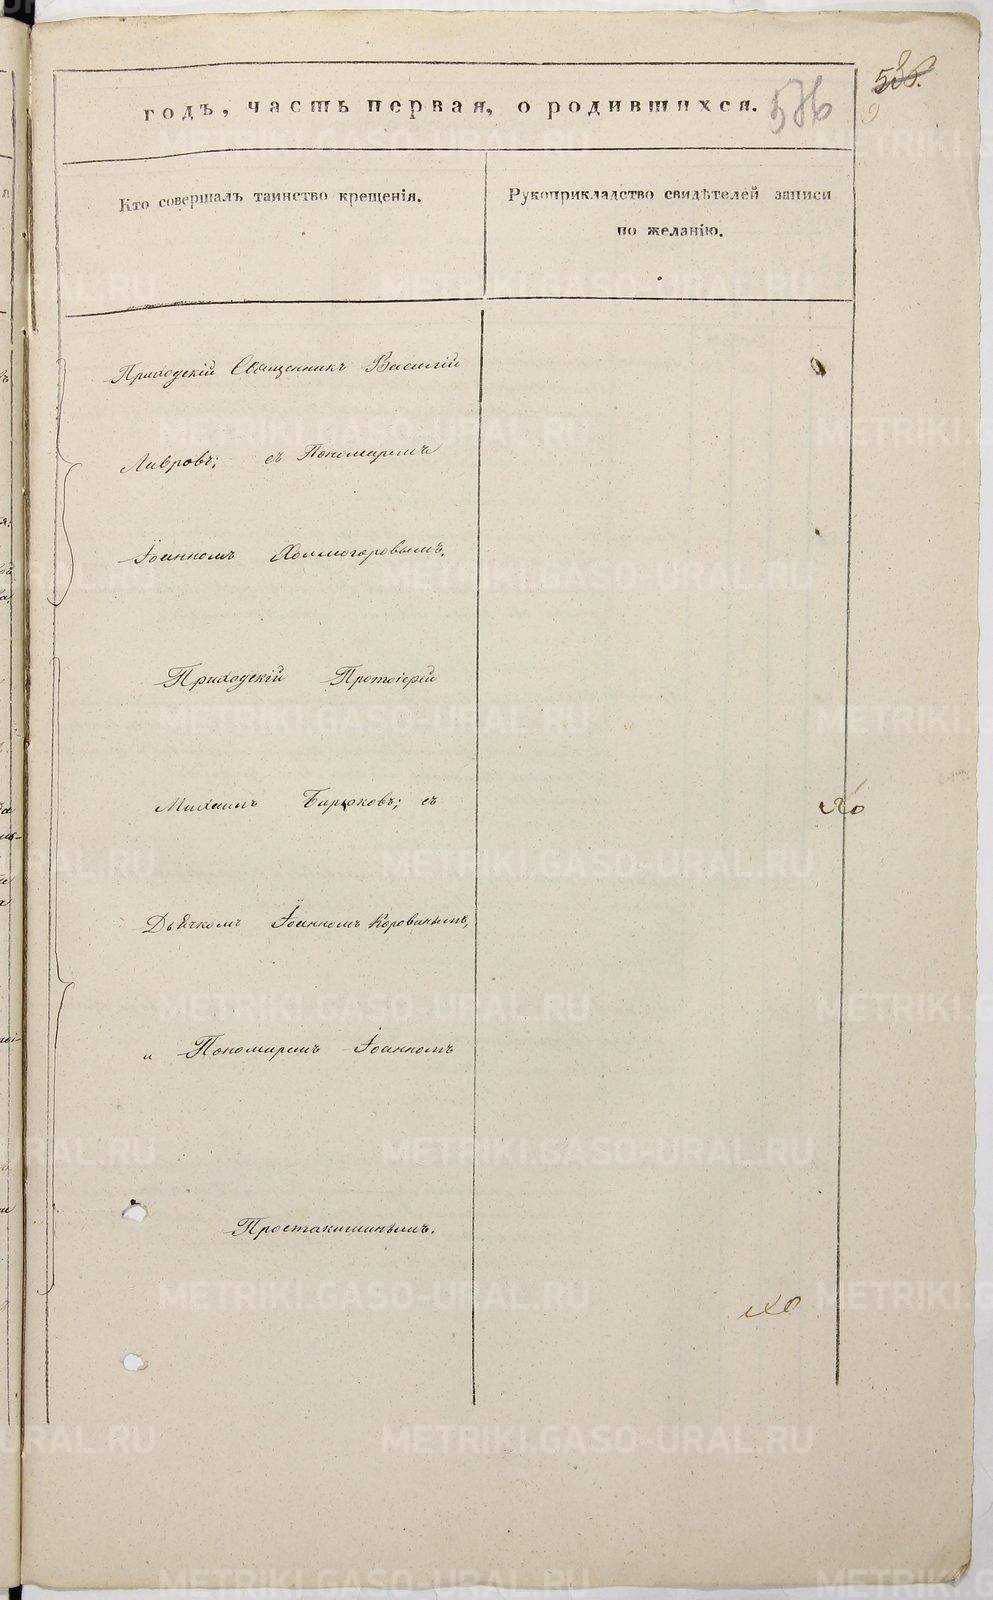 годъ, часть первая, о родившихся. 576
Кто совершалъ таинство крещенія.
Рукоприкладство свидѣтелей записи
по желанію.
Приходскій Священникъ Василій
Лавровъ; съ Пономаремъ
Іоанномъ Холмогоровымъ.
Приходскій Протоіерей
Михаилъ Бирюковъ; съ
Дьячкомъ Іоанномъ Коровинымъ,
и Пономаремъ Іоанномъ
Простакишинымъ.
METRIKI.GASO-URAL.RU